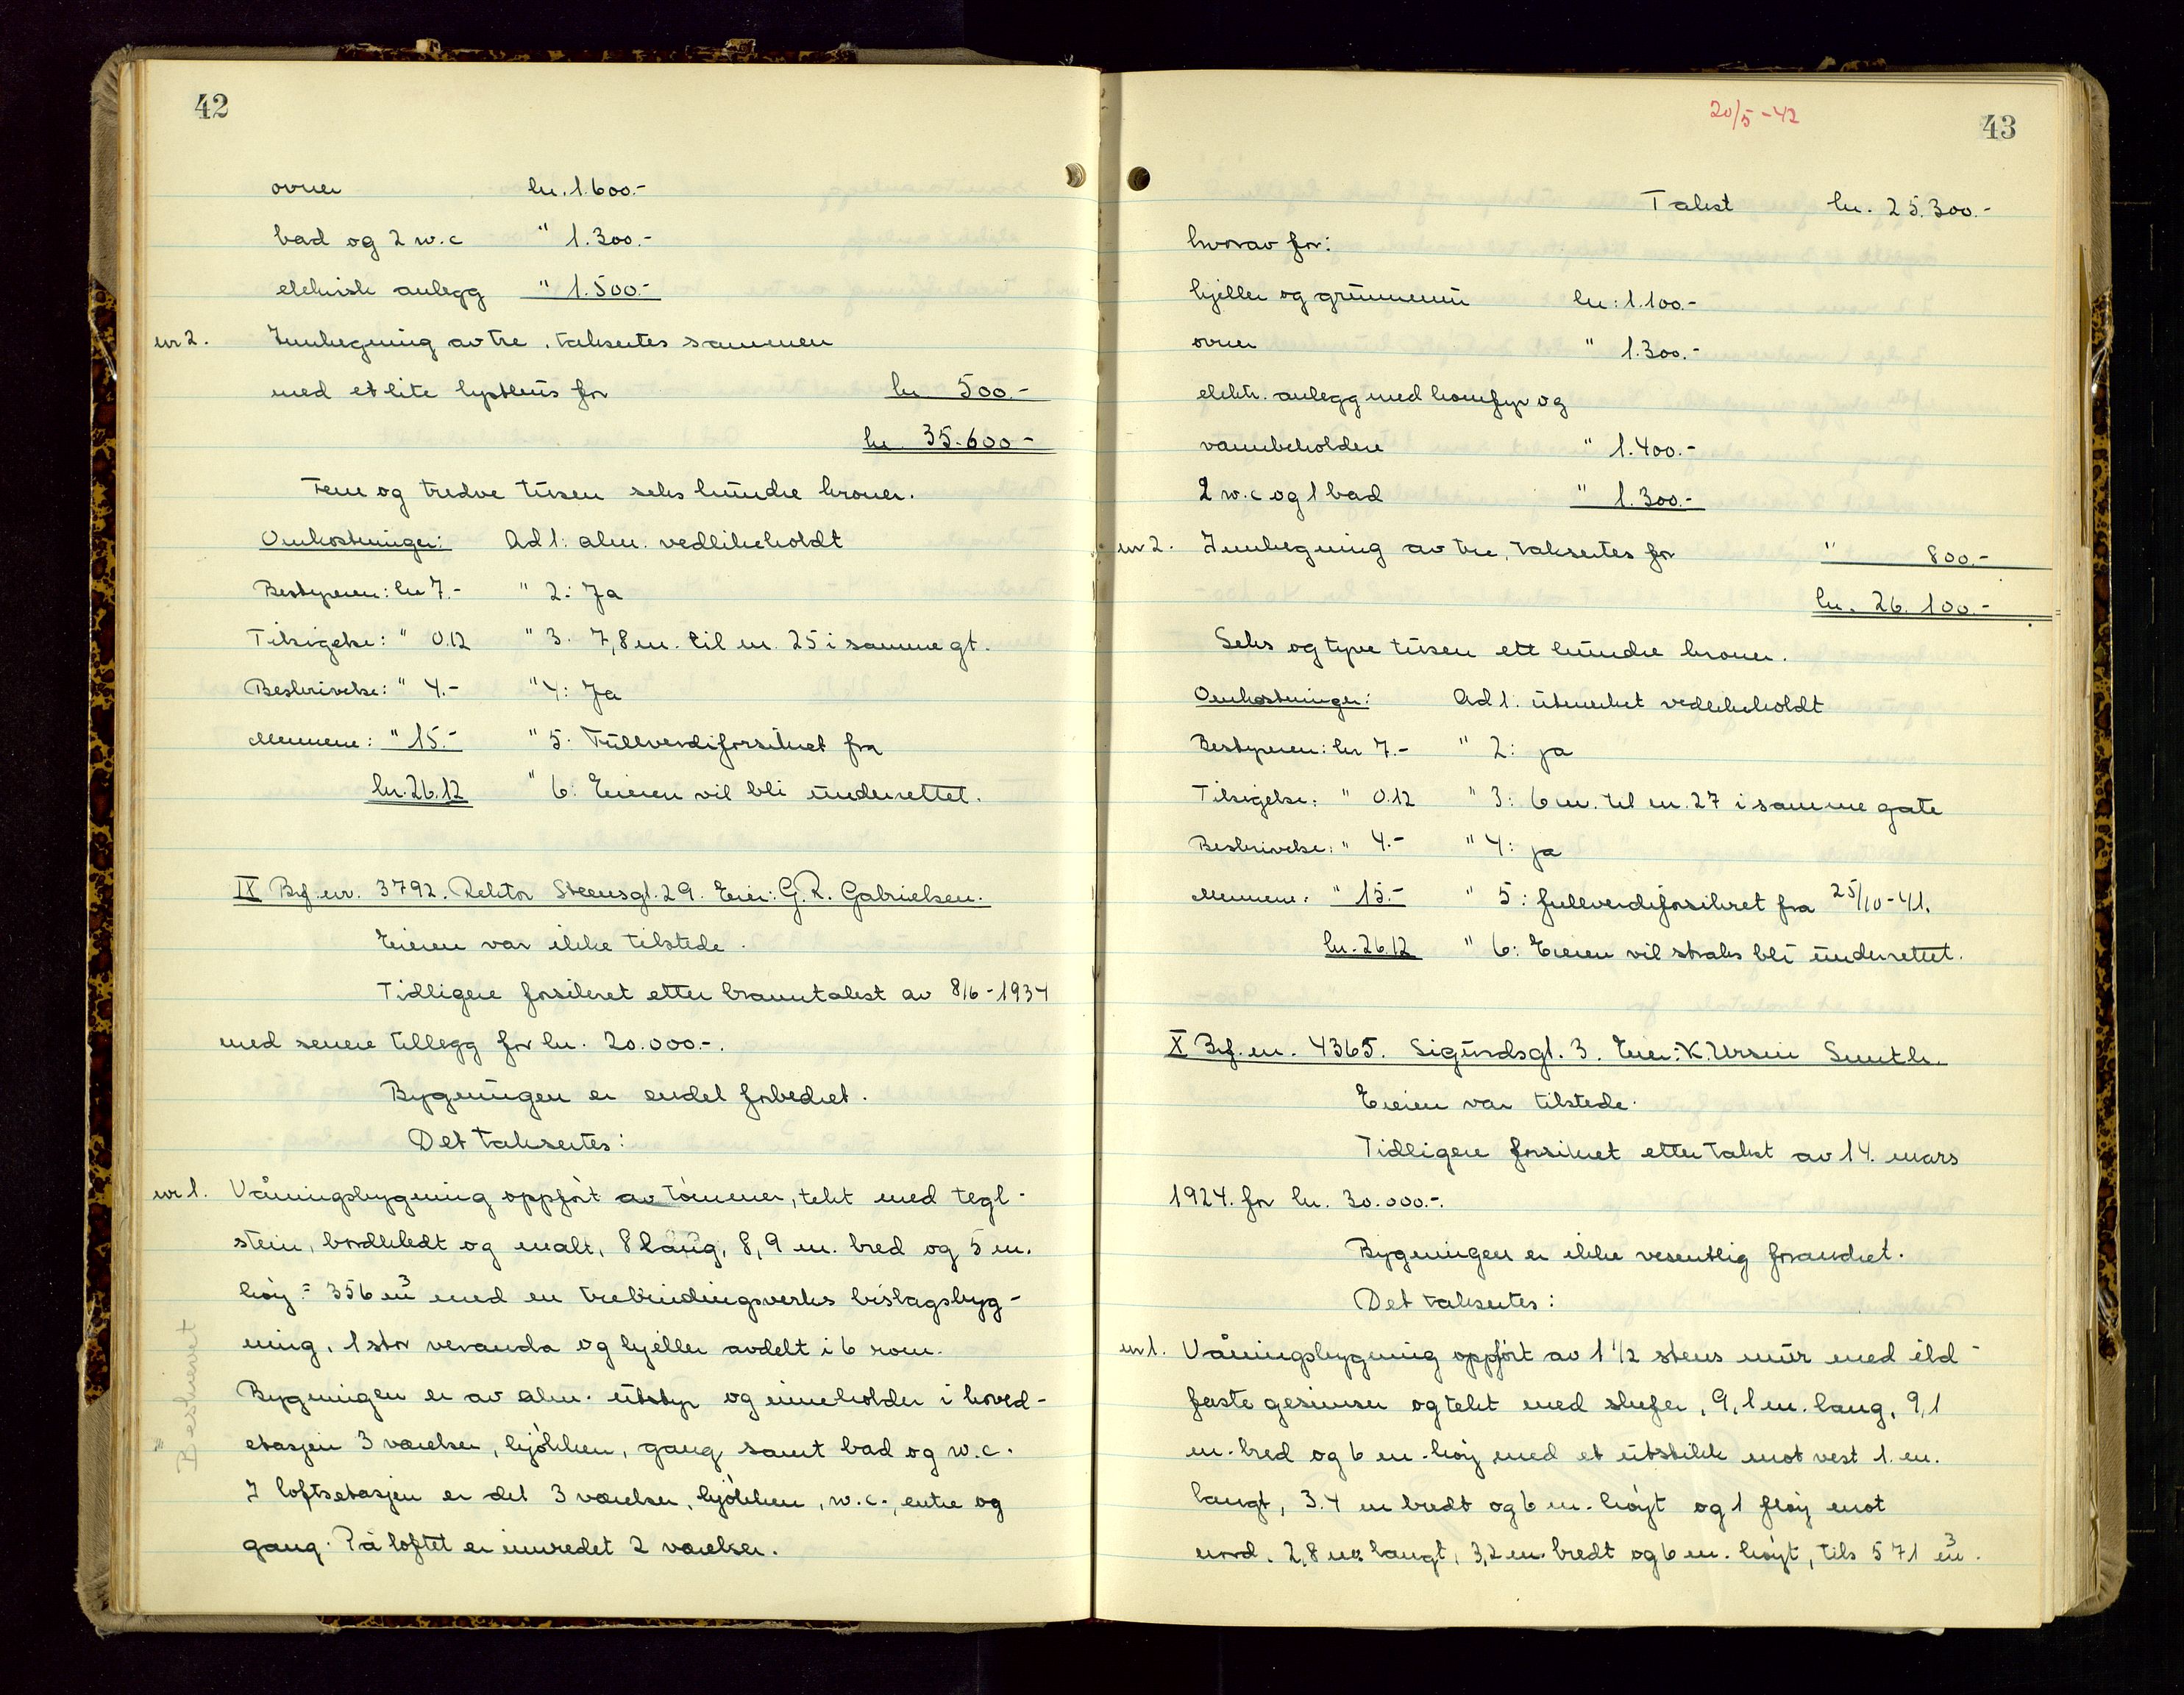 42
ovner kr. 1.600.-
bad og 2 w.c " 1.300.-
elektrisk anlegg " 1.500.-
nr 2. Innhegning av tre, takseres sammen
med et lite lysthus for kr 500.-
kr. 35.600.-
Fem og tredve tusen seks hundre kroner.
Omkostninger: Ad 1: alm. vedlikeholdt
Bestyreren: kr 7.- " 2: Ja
Tilsigelse: " 0.12 " 3. 7,8 m. til nr. 25 i samme gt.
Beskrivelse: " 4.- " 4: Ja
Mennene: " 15.- " 5. Fullverdiforsikret fra
kr. 26.12 " 6: Eieren vil bli underrettet.
IX Brf. nr. 3792. Rektor Steensgt. 29. Eier: G. R. Gabrielsen.
Eieren var ikke tilstede.
Tidligere forsikret etter branntakst av 8/6-1934
med senere tillegg for kr. 20.000.-.
Bygningen er endel forbedret.
Det takseres:
nr 1. Våningsbygning oppført av tømmer, tekt med tegl-
stein, bordkledt og malt, 8 lang, 8,9 m. bred og 5 m.
høy = 356 m³ med en trebindingsverks bislagsbyg-
ning, 1 stor veranda og kjeller avdelt i 6 rom.
Bygningen er av alm. utstyr og inneholder i hoved-
etasjen 3 værelser, kjøkken, gang samt bad og w.c.
I loftsetasjen er det 3 værelser, kjøkken, w.c., entre og
gang. På loftet er innredet 2 værelser.
Beskrevet
20/5-42
43
Takst kr. 25.300.-
hvorav for:
kjeller og grunnmur kr: 1.100.-
ovner " 1.300.-
elektr. anlegg med komfyr og
vannbeholdere " 1.400.-
2 w.c og 1 bad " 1.300.-
nr 2. Innhegning av tre, takseres for " 800.-
kr. 26.100.-
Seks og tyve tusen ett hundre kroner.
Omkostninger: Ad 1: utmerket vedlikeholdt
Bestyreren: kr 7.- " 2: ja
Tilsigelse: " 0.12 " 3: 6 m. til nr. 27 i samme gate
Beskrivelse: " 4.- " 4: ja
Mennene: " 15.- " 5: fullverdiforsikret fra 25/10-41.
kr. 26.12 " 6: Eieren vil straks bli underrettet.
X Brf. nr. 4365. Sigurdsgt. 3. Eier: K. Ursin Smith.
Eieren var tilstede.
Tidligere forsikret etter takst av 14. mars
1924. for kr. 30.000.-.
Bygningen er ikke vesentlig forandret.
Det takseres:
nr 1. Våningsbygning oppført av 1 1/2 stens mur med ild-
faste gesimser og tekt med skifer, 9,1 m. lang, 9,1
m. bred og 6 m. høy med et utstikk mot vest 1. m.
langt, 3.4 m bredt og 6 m. høyt og 1 fløy mot
nord. 2,8 m. langt, 3,2 m. bredt og 6 m. høyt, tils 571 m³.